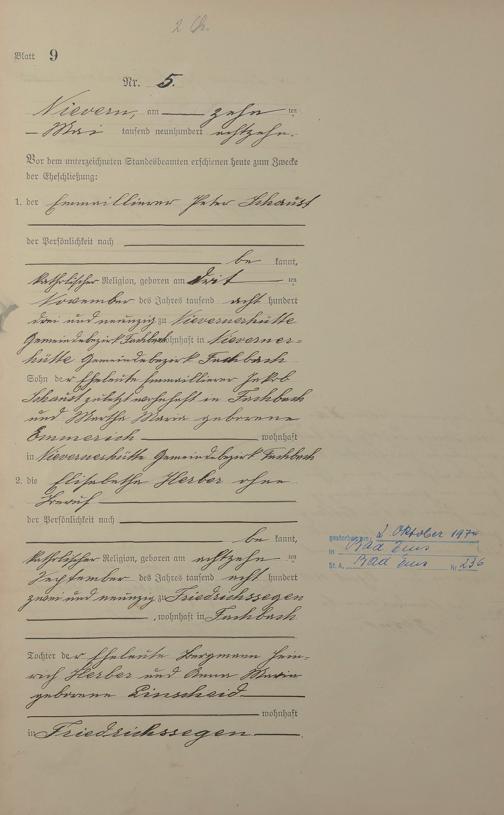 2 Ch.
Blatt 9
Nr. 5.
Nievern, am zehn ten
Mai tausend neunhundert achtzehn.
Vor dem unterzeichneten Standesbeamten erschienen heute zum Zwecke
der Eheschließung:
1. der Emaillierer Peter Schaust
der Persönlichkeit nach
be kannt,
katholischer Religion, geboren am drit ten
November des Jahres tausend acht hundert
drei und neunzig zu Nievernerhütte
Gemeindebezirk Fachbach wohnhaft in Nieverner-
hütte Gemeindebezirk Fachbach
Sohn der Eheleute Emaillierer Jakob
Schaust zuletzt wohnhaft in Fachbach
und Martha Maria geborene
Emmerich wohnhaft
in Nievernerhütte Gemeindebezirk Fachbach
2. die Elisabetha Herber ohne
Beruf
der Persönlichkeit nach
be kannt,
katholischer Religion, geboren am achtzehn ten
September des Jahres tausend acht hundert
zwei und neunzig zu Friedrichssegen
, wohnhaft in Fachbach
Tochter der Eheleute Bergmann Hein-
rich Herber und Anna Maria
geborene Linscheid
wohnhaft
in Friedrichssegen
gestorben am 2. Oktober
in Bad Ems
St. A. Bad Ems Nr. 236